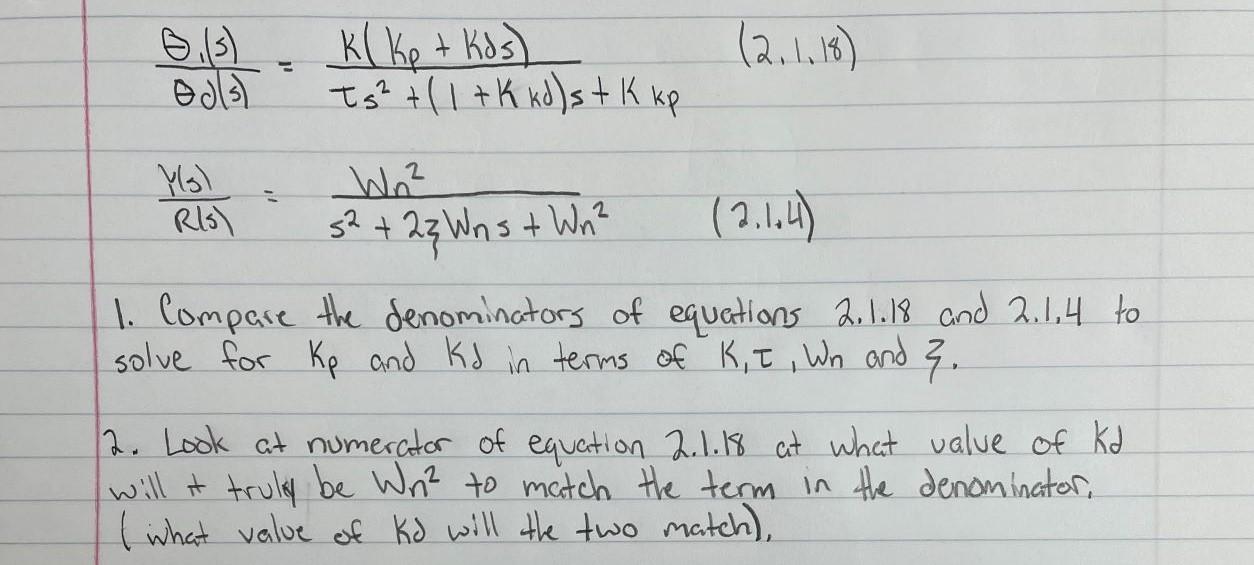 Θ₁(s) / Θd(s) = K(Kp + Kds) / τs² + (1 + K kd)s + K kp (2.1.18)
Y(s) / R(s) = Wn² / s² + 2ξWns + Wn² (2.1.4)
1. Compare the denominators of equations 2.1.18 and 2.1.4 to
solve for Kp and Kd in terms of K, τ, Wn and ξ.
2. Look at numerator of equation 2.1.18 at what value of Kd
will it truly be Wn² to match the term in the denominator.
(what value of Kd will the two match).